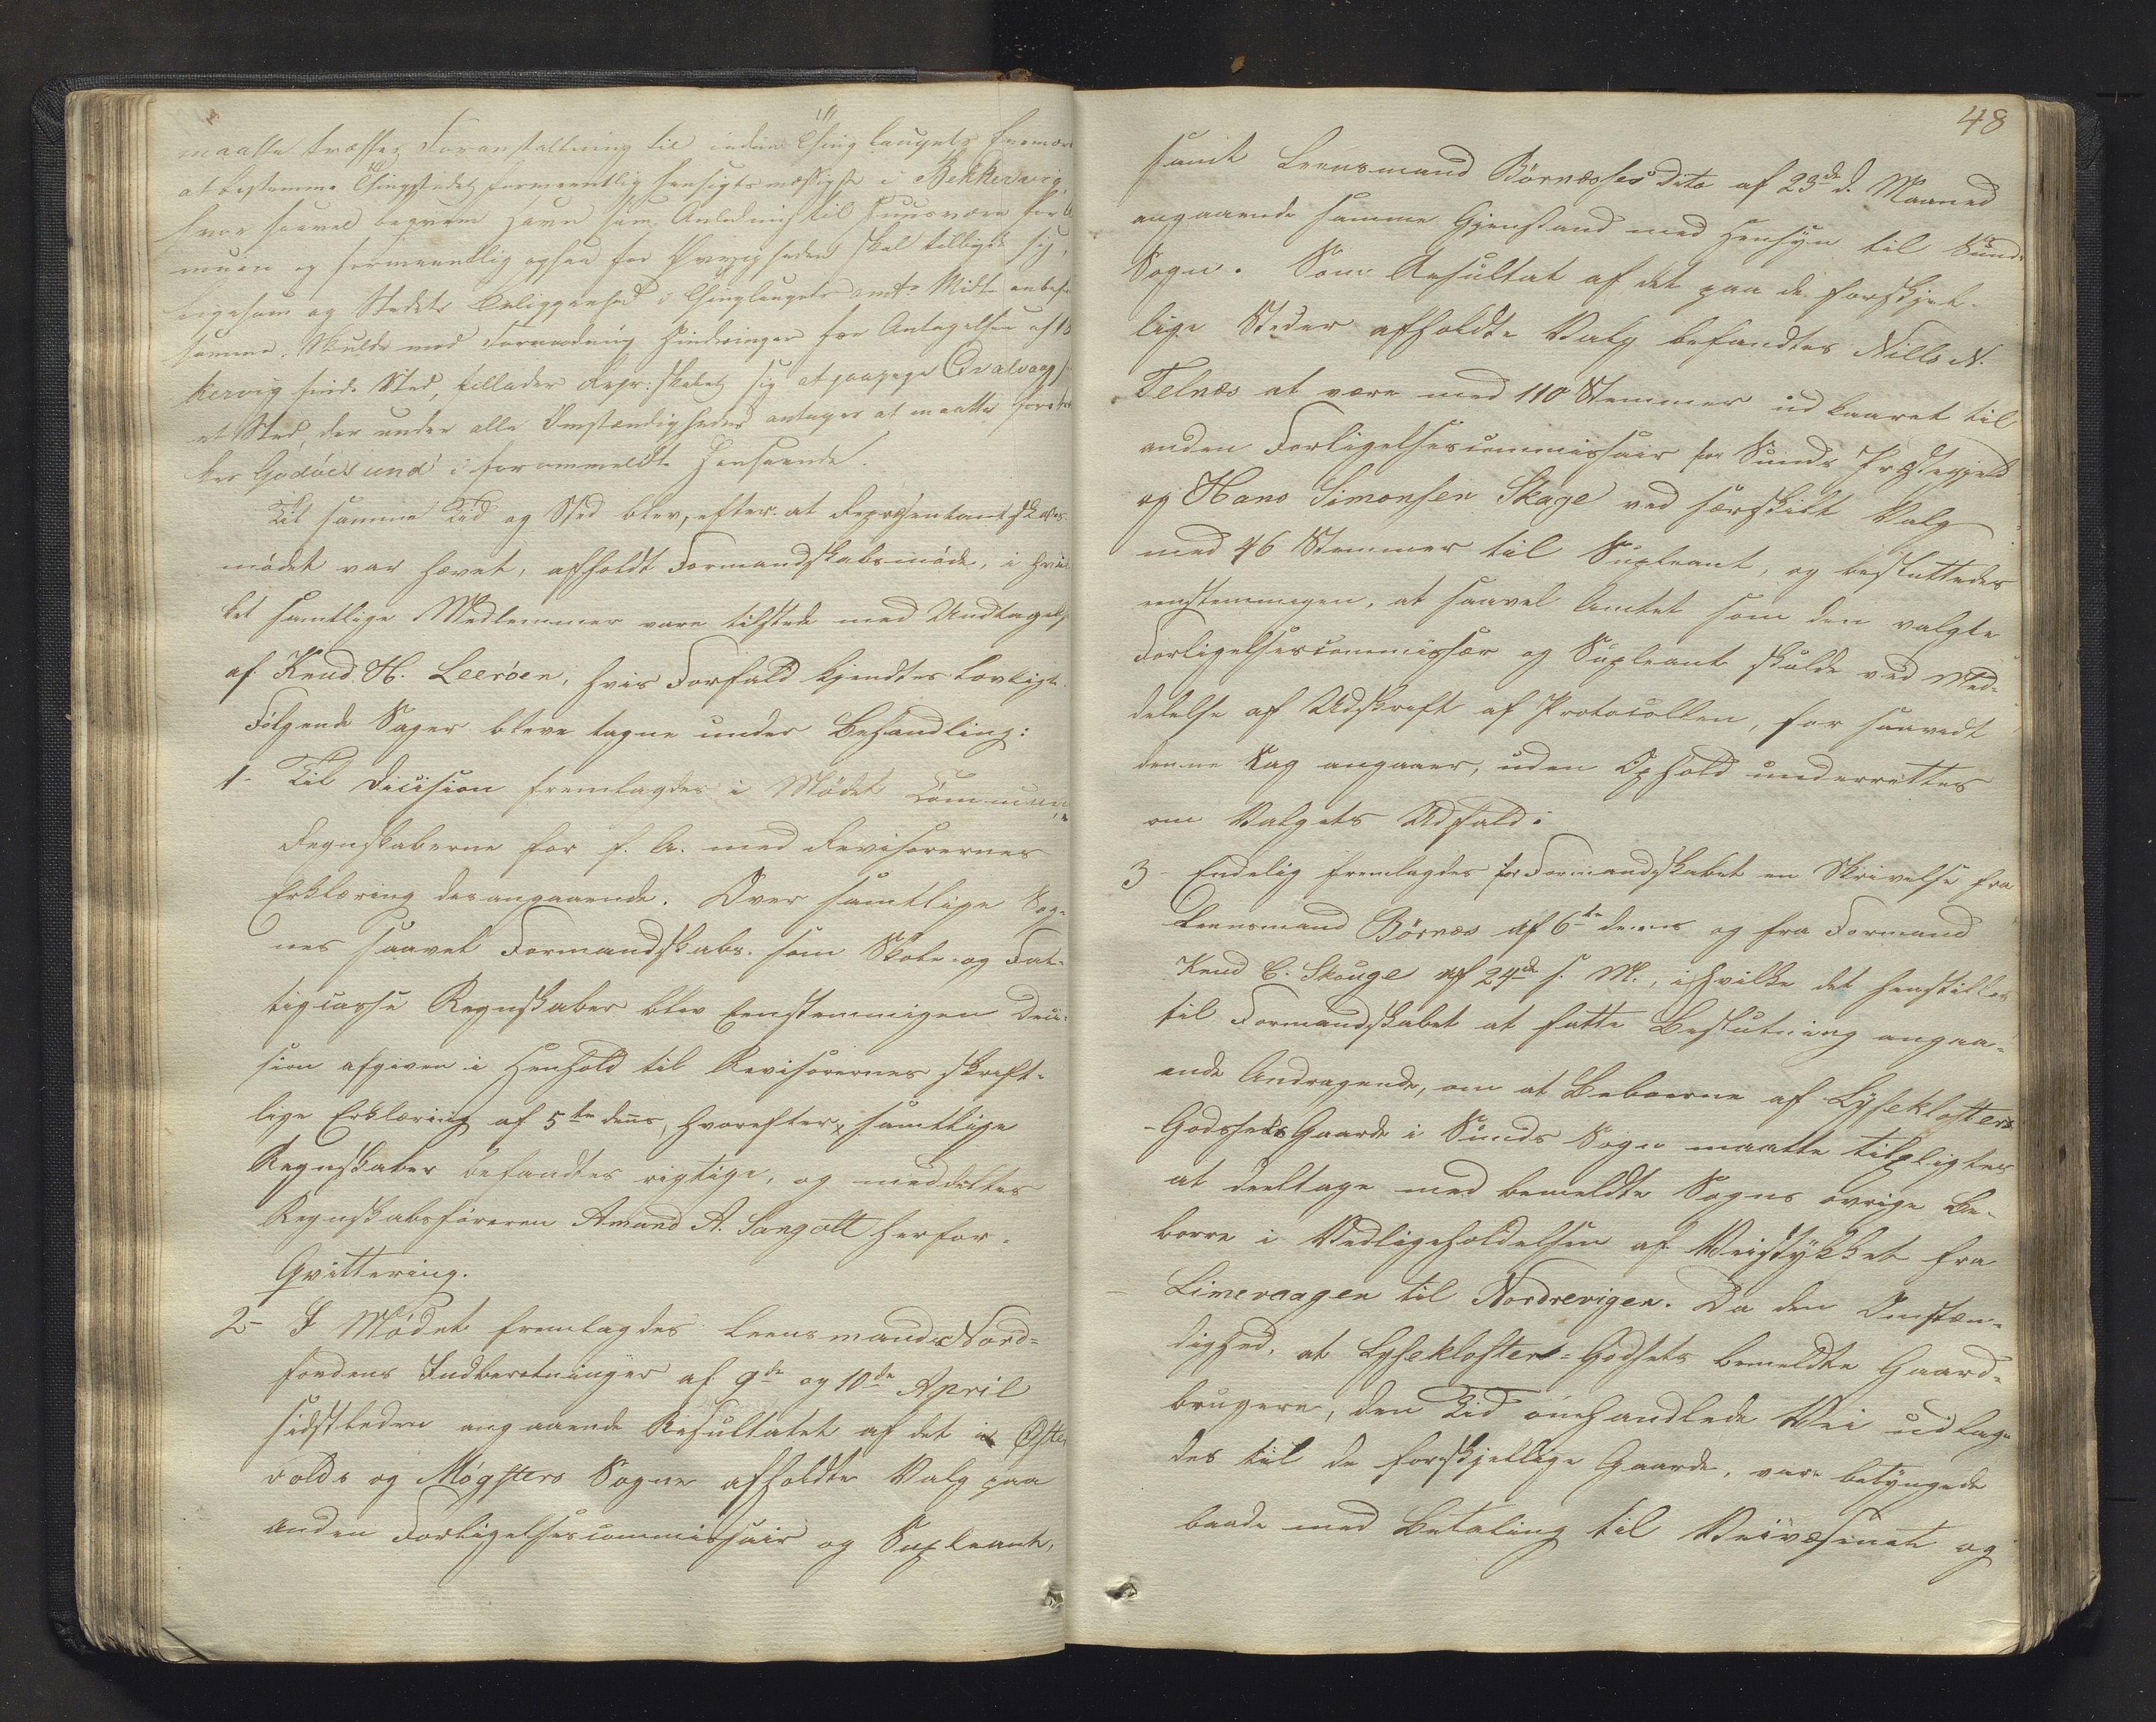 maatte træffes Foranstaltning til inden Thinglaugets Enemær
at bestemme Thingstedet formeentlig hensigtsmæssigst i Bekkervig,
hvor saavel beqvem Havn som Anledning til Huusvære for 
muen og formeentlig ogsaa for Øvrigheden skal tilbyde sig,
ligesom og Stedets Beliggenhed i Thinglaugets Midte anbefa
samme. Skulde mod Formodning Hindringer for Antagelsen af 
kervig finde Sted, tillader Repr:skabet sig at paapege Qvalvaag 
et Sted, der under alle Omstændigheder antages at maatte foretræk
kes Godöesund i forommeldte Henseende.
Til samme Tid og Sted blev, efter at Repræsentantskabs
mödet var hævet, afholdt Formandskabsmöde, i hvil
ket samtlige Medlemmer vare tilstede med Undtagelse
af Knud H. Leeröen, hvis Forfald kjendtes lovligt.
Fölgende Sager bleve tagne under Behandling:
1- Til Decision fremlagdes i Mödet Commune
Regnskaberne for f. A. med Revisorernes
Erklæring desangaaende. Over samtlige Sog-
nes saavel Formandskabs- som Skole- og Fat-
tigcasse Regnskaber blev Eenstemmigen Deci-
sion afgiven i Henhold til Revisorernes skrift-
lige Erklæring af 5te dens, hvorefter samtlige
Regnskaber befandtes rigtige, og meddeltes
Regnskabsföreren Amand A. Sangolt herfor
Qvittering.
2- I Mödet fremlagdes Leensmand Nord-
fondens Indberetninger af 9de og 10de April
sidstleden angaaende Resultatet af det i Öster
volds og Mögsters Sogne afholdte Valg paa
anden Forligelsescommissair og Supleant,
48
samt Leensmand Börnæsses dito af 23de d. Maaned
angaaende samme Gjenstand med Hensyn til Sunds
Sogn. Som Resultat af det paa de forskjel-
lige Steder afholdte Valg befandtes Nills N.
Telnæs at være med 110 Stemmer udkaaret til
anden Forligelsescommissair for Sunds Præstegjeld
og Hans Simonsen Skage ved særskilt Valg
med 46 Stemmer til Supleant, og besluttedes
eenstemmigen, at saavel Amtet som den valgte
Forligelsescommissær og Supleant skulde ved Med-
delelse af Udskrift af Protocollen, for saavidt
denne Sag angaaer, uden Ophold underrettes
om Valgets Udfald.
3- Endelig fremlagdes for Formandskabet en Skrivelse fra
Leensmand Börnæs af 6te dennes og fra Formand
Knud C. Skouge af 24de f. M., i hvilke det henstilles
til Formandskabet at fatte Beslutning angaa-
ende Andragende, om at Beboerne af Lyseklosters
-Godsets Gaarde i Sunds Sogn maatte tilpligtes
at deeltage med bemeldte Sogns övrige Be-
boere i Vedligeholdelsen af Veistykket fra
Limevaagen til Nordrevigen. Da den Omstæn-
dighed, at Lyseklosters-Godsets bemeldte Gaard-
brugere, den Tid omhandlede Vei udlag-
des til de forskjellige Gaarde, vare betyngede
baade med Betaling til Veivæsenet og